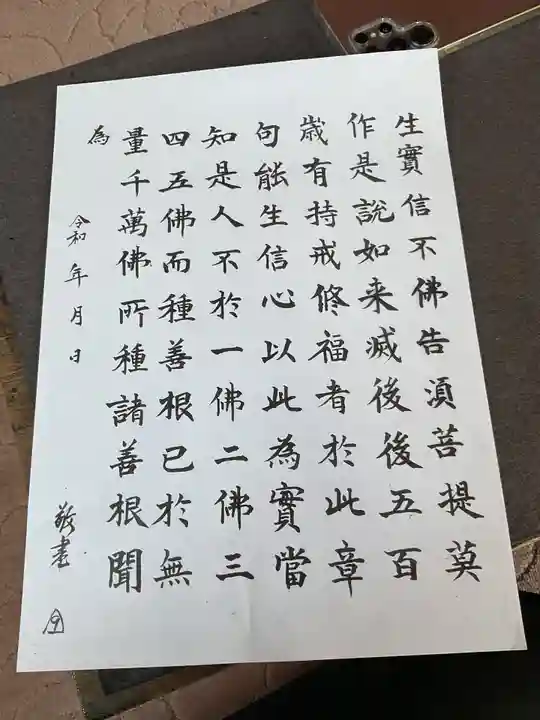 生實信不佛告須菩提莫
作是說如来滅後後五百
歲有持戒修福者於此章
句能生信心以此為實當
知是人不於一佛二佛三
四五佛而種善根已於無
量千萬佛所種諸善根聞
為
令和 年 月 日
敬書